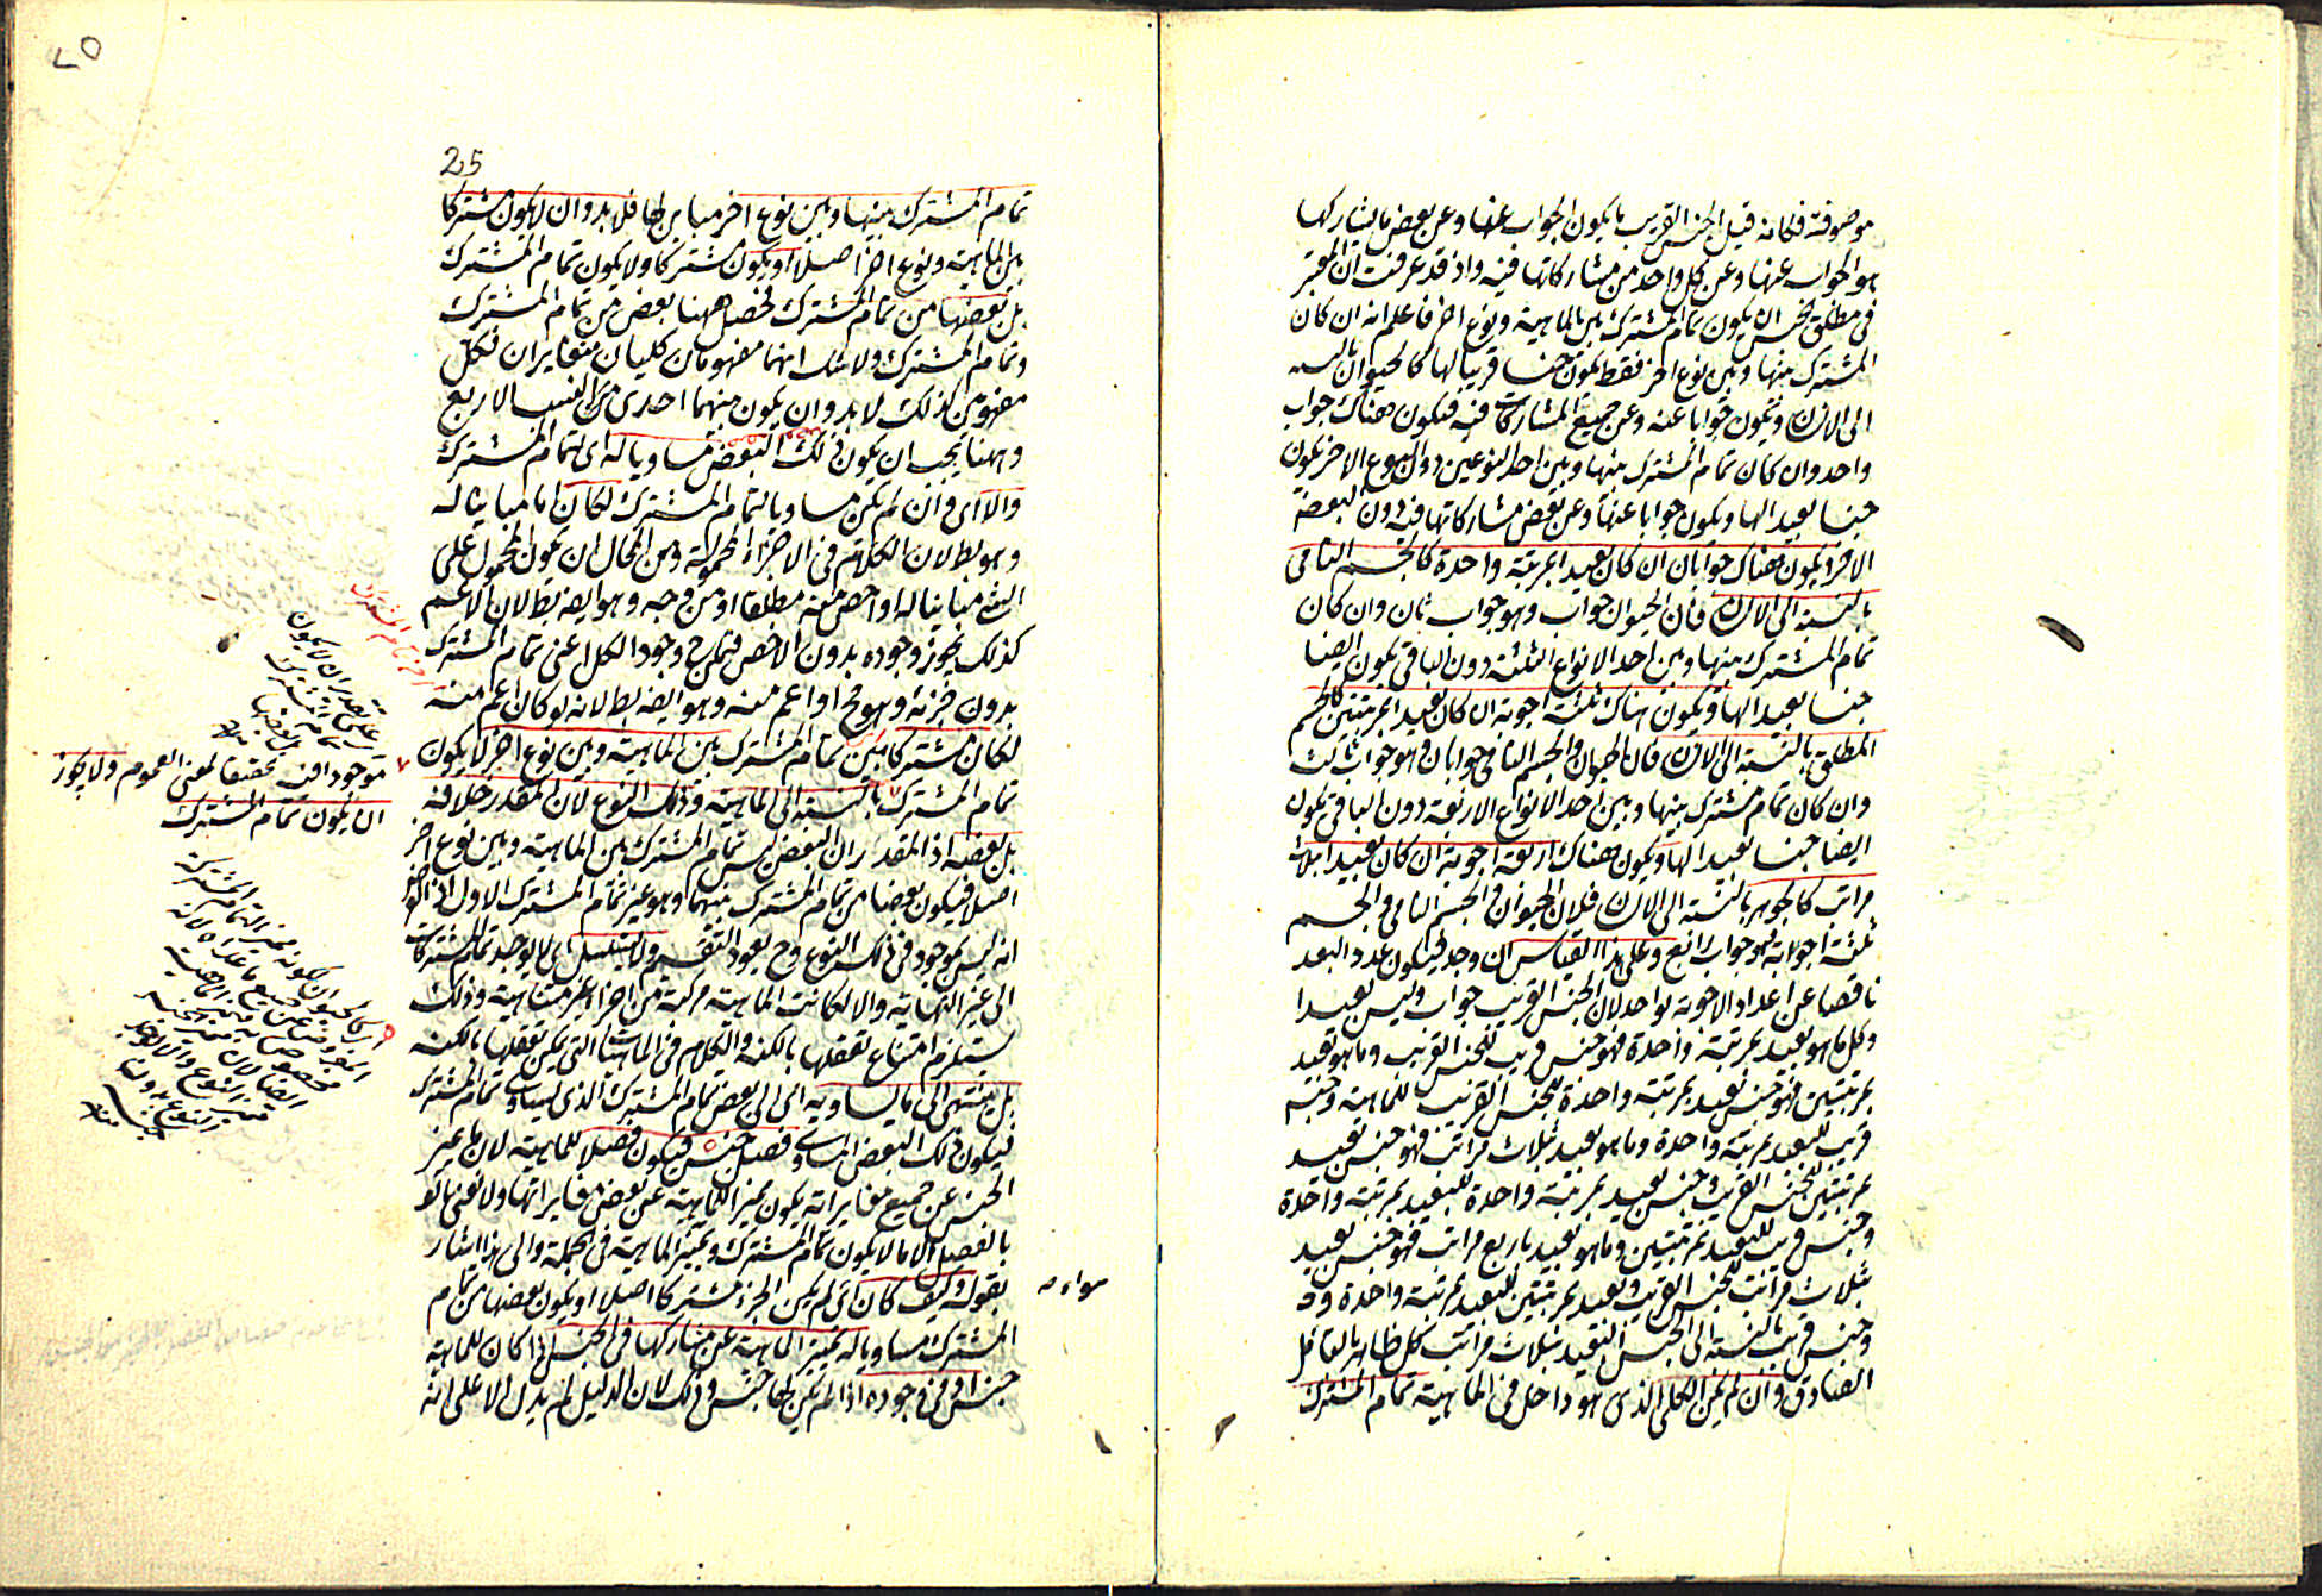 موصوفة فكانه قيل الجنس القريب ما يكون الجواب عنها وعن بعض ما يشاركها
هو الجواب عنها وعن كل واحد من مشاركاتها فيه واذ قد عرفت ان المعتبر
فى مطلق الجنس ان يكون تمام المشترك بين الماهية ونوع اخر فاعلم انه ان كان
المشترك بينها وبين نوع اخر فقط يكون جنسا قريبا لها كالحيوان بالنسبة
الى الانسان ويكون جوابا عنه وعن جميع المشاركات فيه فيكون هناك جواب
واحد وان كان تمام المشترك بينها وبين احد النوعين دون النوع الاخر يكون
جنسا بعيدا لها ويكون جوابا عنها وعن بعض مشاركاتها فيه دون البعض
الاخر ويكون هناك جوابان ان كان بعيدا بمرتبة واحدة كالجسم النامى
بالنسبة الى الانسان فان الحيوان جواب وهو جواب ثان وان كان
تمام المشترك بينها وبين احد الانواع الثلثة دون الباقى يكون ايضا
جنسا بعيدا لها ويكون هناك ثلثة اجوبة ان كان بعيدا بمرتبتين كالجسم
المطلق بالنسبة الى الانسان فان الحيوان والجسم النامى جوابان وهو جواب ثالث
وان كان تمام مشترك بينها وبين احد الانواع الاربعة دون الباقى يكون
ايضا جنسا بعيدا لها ويكون هناك اربعة اجوبة ان كان بعيدا بثلاث
مراتب كالجوهر بالنسبة الى الانسان فان الحيوان والجسم النامى والجسم
ثلثة اجوبة وهو جواب رابع وعلى هذا القياس ان وجد فيكون عدد البعد
ناقصا عن اعداد الاجوبة بواحد لان الجنس القريب جواب وليس بعيدا
وكل ما هو بعيد بمرتبة واحدة فهو جنس قريب للجنس القريب وما هو بعيد
بمرتبتين فهو جنس بعيد بمرتبة واحدة للجنس القريب للماهية وجنس
قريب للبعيد بمرتبة واحدة وما هو بعيد بثلاث مراتب فهو جنس بعيد
بمرتبتين للجنس القريب وجنس بعيد بمرتبة واحدة للبعيد بمرتبة واحدة
وجنس قريب للبعيد بمرتبتين وما هو بعيد باربع مراتب فهو جنس بعيد
بثلاث مراتب للجنس القريب وبعيد بمرتبتين للبعيد بمرتبة واحدة
وجنس قريب بالنسبة الى الجنس البعيد بثلاث مراتب كل ظاهر بالتامل
الصادق وان لم يكن الكلى الذى هو داخل فى الماهية تمام المشترك
25
تمام المشترك بينها وبين نوع اخر مباين لها فلا بد وان لا يكون مشتركا
بين الماهية ونوع اخر اصلا او يكون مشتركا ولا يكون تمام المشترك
بل بعضها من تمام المشترك فحصل ههنا بعض من تمام المشترك
وتمام المشترك ولا شك انهما مفهومان كليان متغايران فكل
مفهومين كذلك لا بد وان يكون بينهما احدى من النسب الاربع
وههنا يجب ان يكون ذلك البعض مساويا له اى لتمام المشترك
والا اى وان لم يكن مساويا لتمام المشترك لكان اما مباينا له
وهو بط لان الكلام فى الاجزاء المحمولة ومن المحال ان يكون المحمول على
الشئ مباينا له او اخص منه مطلقا او من وجه وهو ايضه بط لان الاعم
كذلك يجوز وجوده بدون الاخص فيلزم ح وجود الكل اعنى تمام المشترك
بدون جزئه وهو مح او اعم منه وهو ايضه بط لانه لو كان اعم منه
لكان مشتركا بين تمام المشترك بين الماهية وبين نوع اخر لا يكون
تمام المشترك بالنسبة الى الماهية وذلك النوع لان المقدر خلافه
بل بعضه اذ المقدر ان البعض ليس تمام المشترك بين الماهية وبين نوع اخر
اصلا فيكون بعضا من تمام المشترك بينهما وهو غير تمام المشترك الاول
انه ليس بموجود فى ذلك النوع وح يعود التقسيم ولا يتسلسل اى لا يوجد تمام المشتركات
الى غير النهاية والا لكانت الماهية مركبة من اجزاء غير متناهية وذلك
يستلزم امتناع تعقلها بالكنه والكلام فى الماهيات التى يمكن تعقلها بالكنه
بل ينتهى الى ما يساويه اى الى بعض تمام المشترك الذى يساوى تمام المشترك
فيكون ذلك البعض المساوى فصل جنس فيكون فصلا للماهية لان ما يميز
الجنس عن جميع مغايراته يكون مميزا للماهية عن بعض مغايراتها ولا نعنى
بالفصل الا ما لا يكون تمام المشترك ويميز الماهية فى الجملة والى هذا اشار
بقوله وكيف كان اى لم يكن الجزء مشتركا اصلا او يكون بعضها من تمام
المشترك مساويا له يميز الماهية عن مشاركها فى الجنس اذا كان للماهية
جنس او فى وجوده اذا لم يكن لها جنس وذلك لان الدليل لم يدل الا على انه
موجودا فيه تحقيقا لمعنى العموم ولا يجوز
ان يكون تمام المشترك
سواء